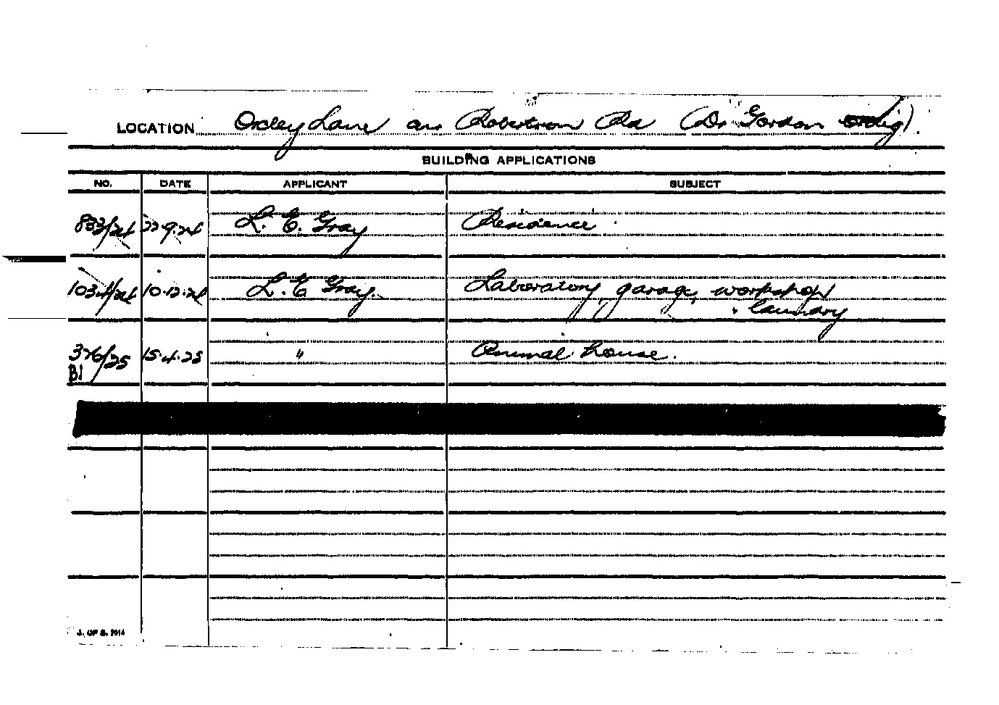 LOCATION Oxley Lane on Robertson Rd (Dr Gordon
BUILDING APPLICATIONS
NO. DATE APPLICANT SUBJECT
833/24 22.9.24 L. E. Gray Residence
1034/24 10.12.24 L. E. Gray. Laboratory, garage, workshop
laundry
376/25 15.4.25 " Animal house.
B1